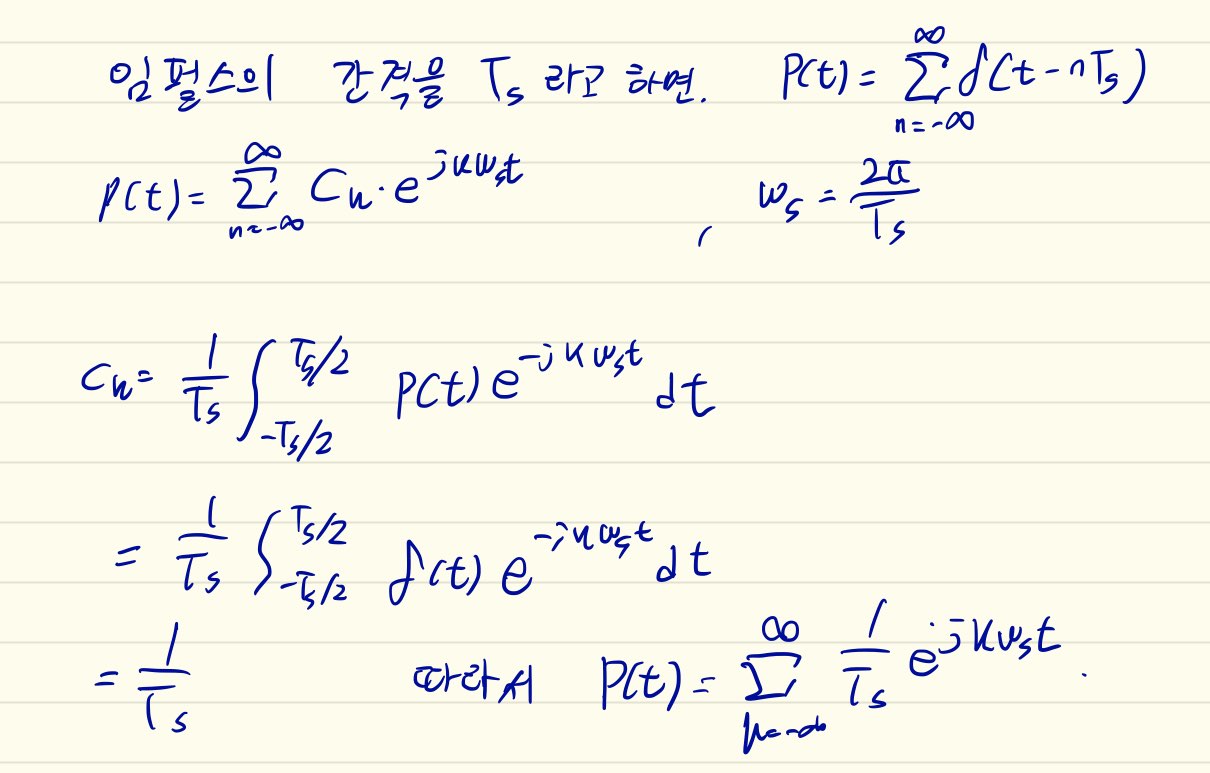 임펄스의 간격을 Ts 라고 하면. P(t) = ∑_{n=-∞}^{∞} δ(t-nTs)
P(t) = ∑_{n=-∞}^{∞} C_k · e^{jkω_s t} , ω_s = 2π/Ts
C_k = 1/Ts ∫_{-Ts/2}^{Ts/2} P(t) e^{-jkω_s t} dt
= 1/Ts ∫_{-Ts/2}^{Ts/2} δ(t) e^{-jkω_s t} dt
= 1/Ts 따라서 P(t) = ∑_{k=-∞}^{∞} 1/Ts e^{jkω_s t} .